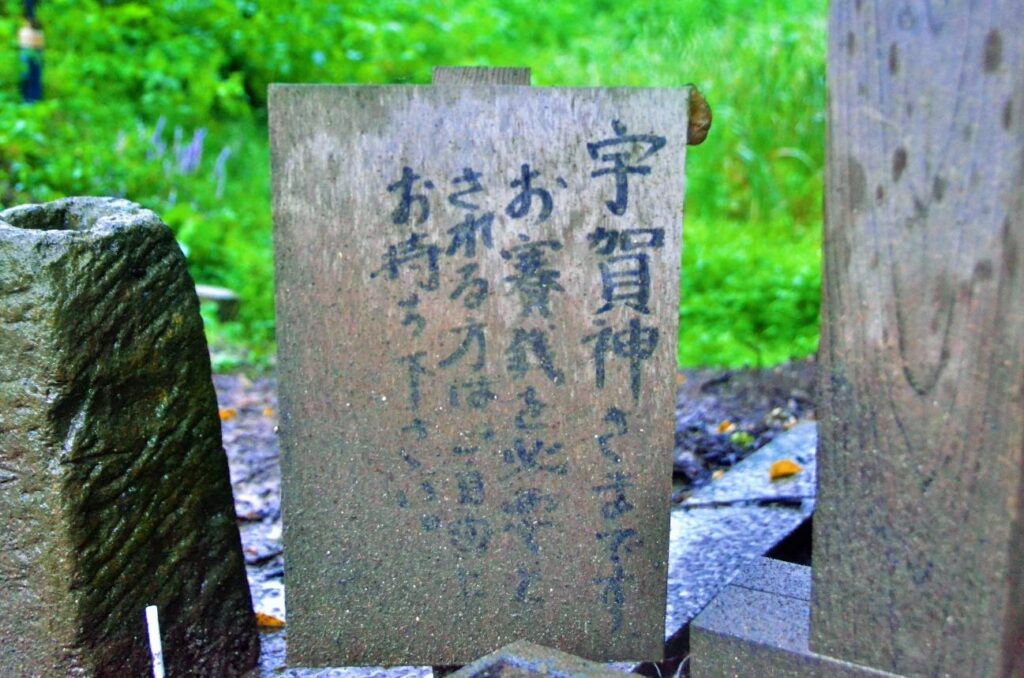 宇賀神さまです
お賽銭を必要と
される方はご自由に
お持ち下さい。